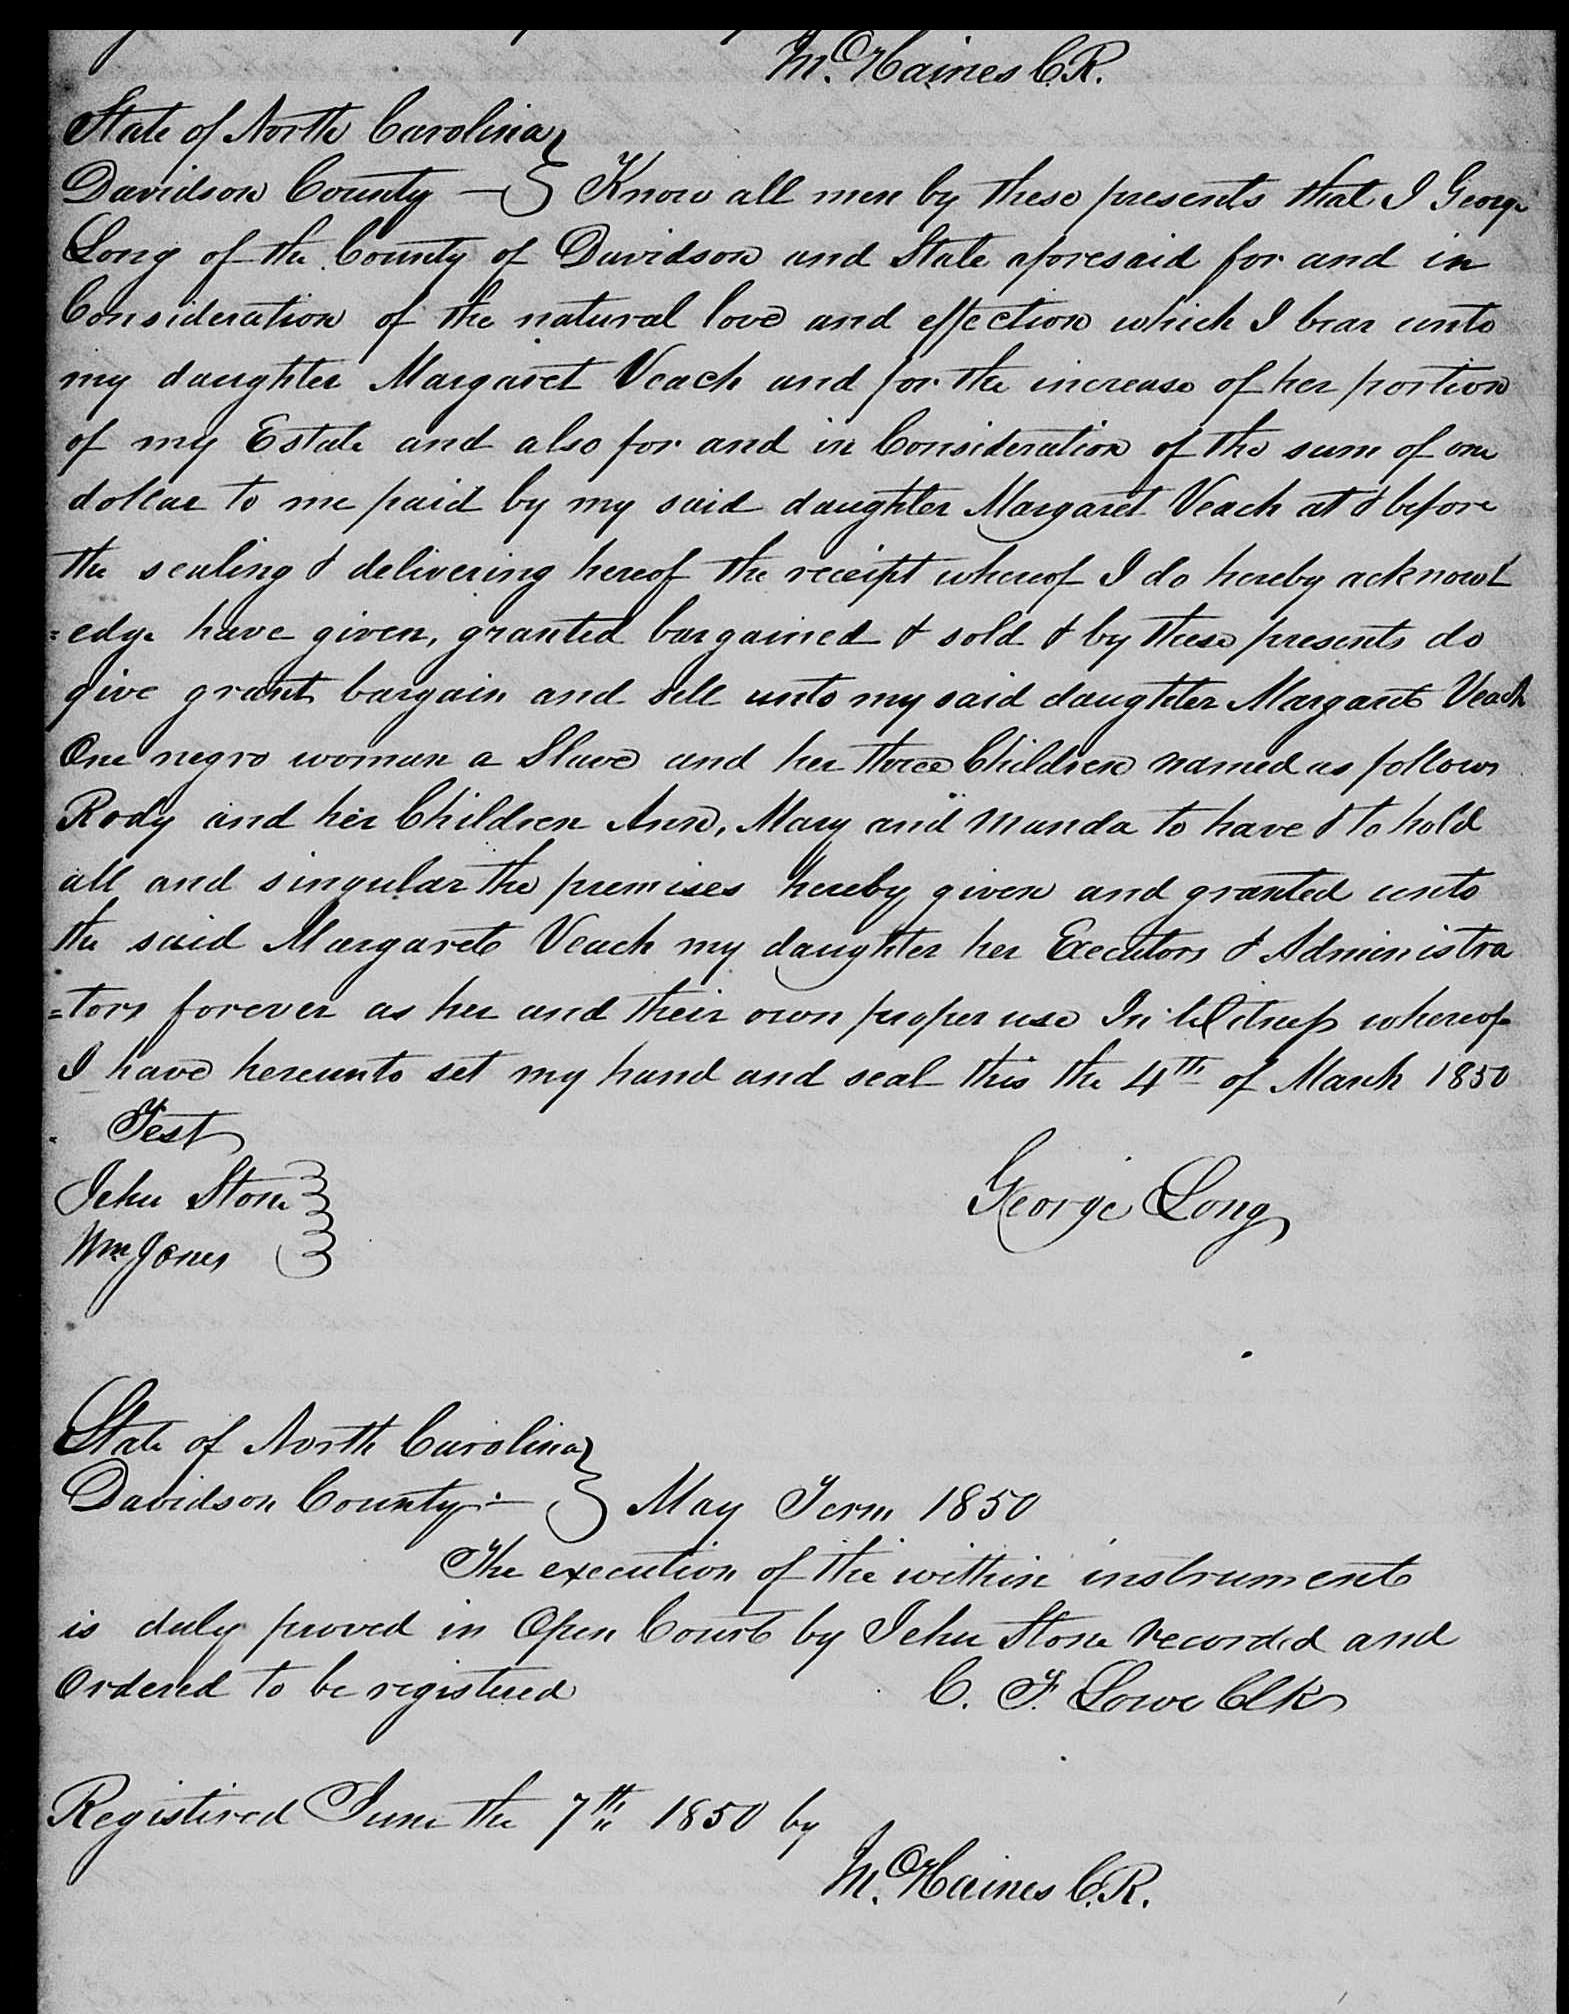 M. Haines C.R.
State of North Carolina
Davidson County — Know all men by these presents that I George
Long of the County of Davidson and State aforesaid for and in
Consideration of the natural love and effection which I bear unto
my daughter Margaret Veach and for the increase of her portion
of my Estate and also for and in Consideration of the sum of one
dollar to me paid by my said daughter Margaret Veach at & before
the sealing & delivering hereof the receipt whereof I do hereby acknowl
=edge have given, granted bargained & sold & by these presents do
give grant bargain and sell unto my said daughter Margaret Veach
One negro woman a Slave and her three Children named as follows
Rody and her Children Ann, Mary and Manda to have & to hold
all and singular the premises hereby given and granted unto
the said Margaret Veach my daughter her Executors & Administra
=tors forever as her and their own proper use In Witness whereof
I have hereunto set my hand and seal this the 4th of March 1850
Test
Jehu Stone
George Long
Wm Jones
State of North Carolina
Davidson County — May Term 1850
The execution of the within instrument
is duly proved in Open Court by Jehu Stone recorded and
Ordered to be registered
C. F. Lowe Clk
Registered June the 7th 1850 by
M. Haines C.R.